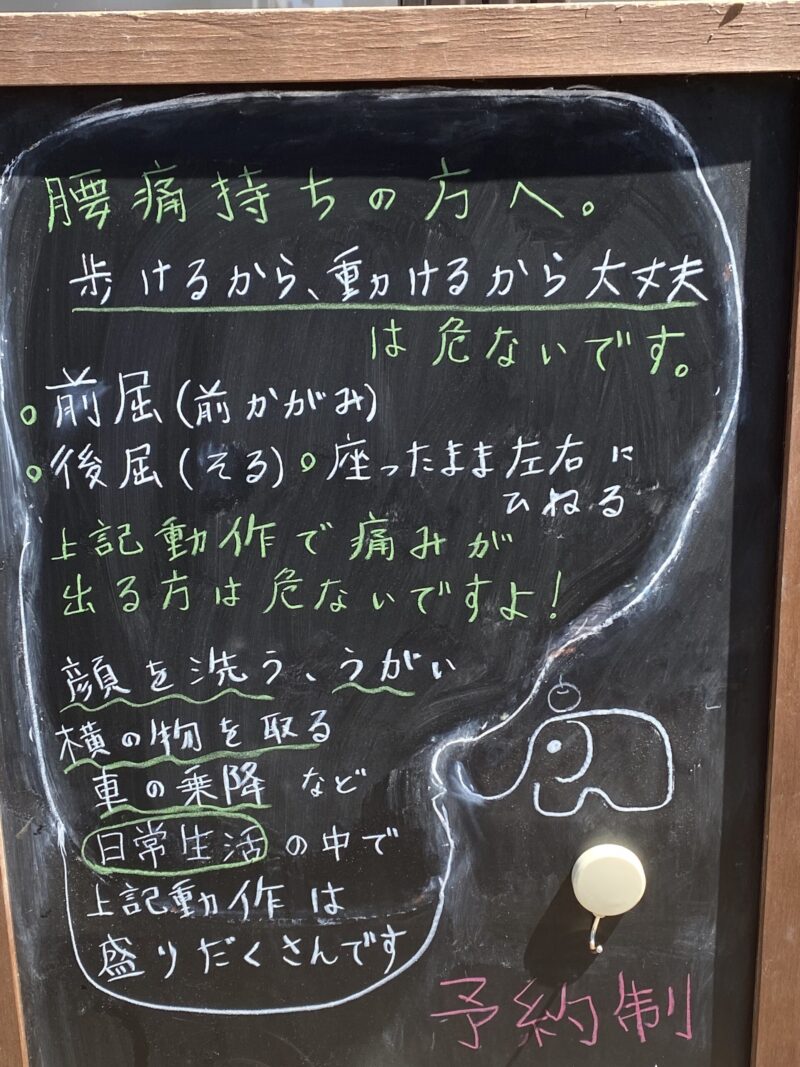 腰痛持ちの方へ。
歩けるから、動けるから大丈夫
は危ないです。
。前屈(前かがみ)
。後屈(そる)。座ったまま左右に
ひねる
上記動作で痛みが
出る方は危ないですよ!
顔を洗う、うがい
横の物を取る
車の乗降 など
日常生活の中で
上記動作は
盛りだくさんです
予約制